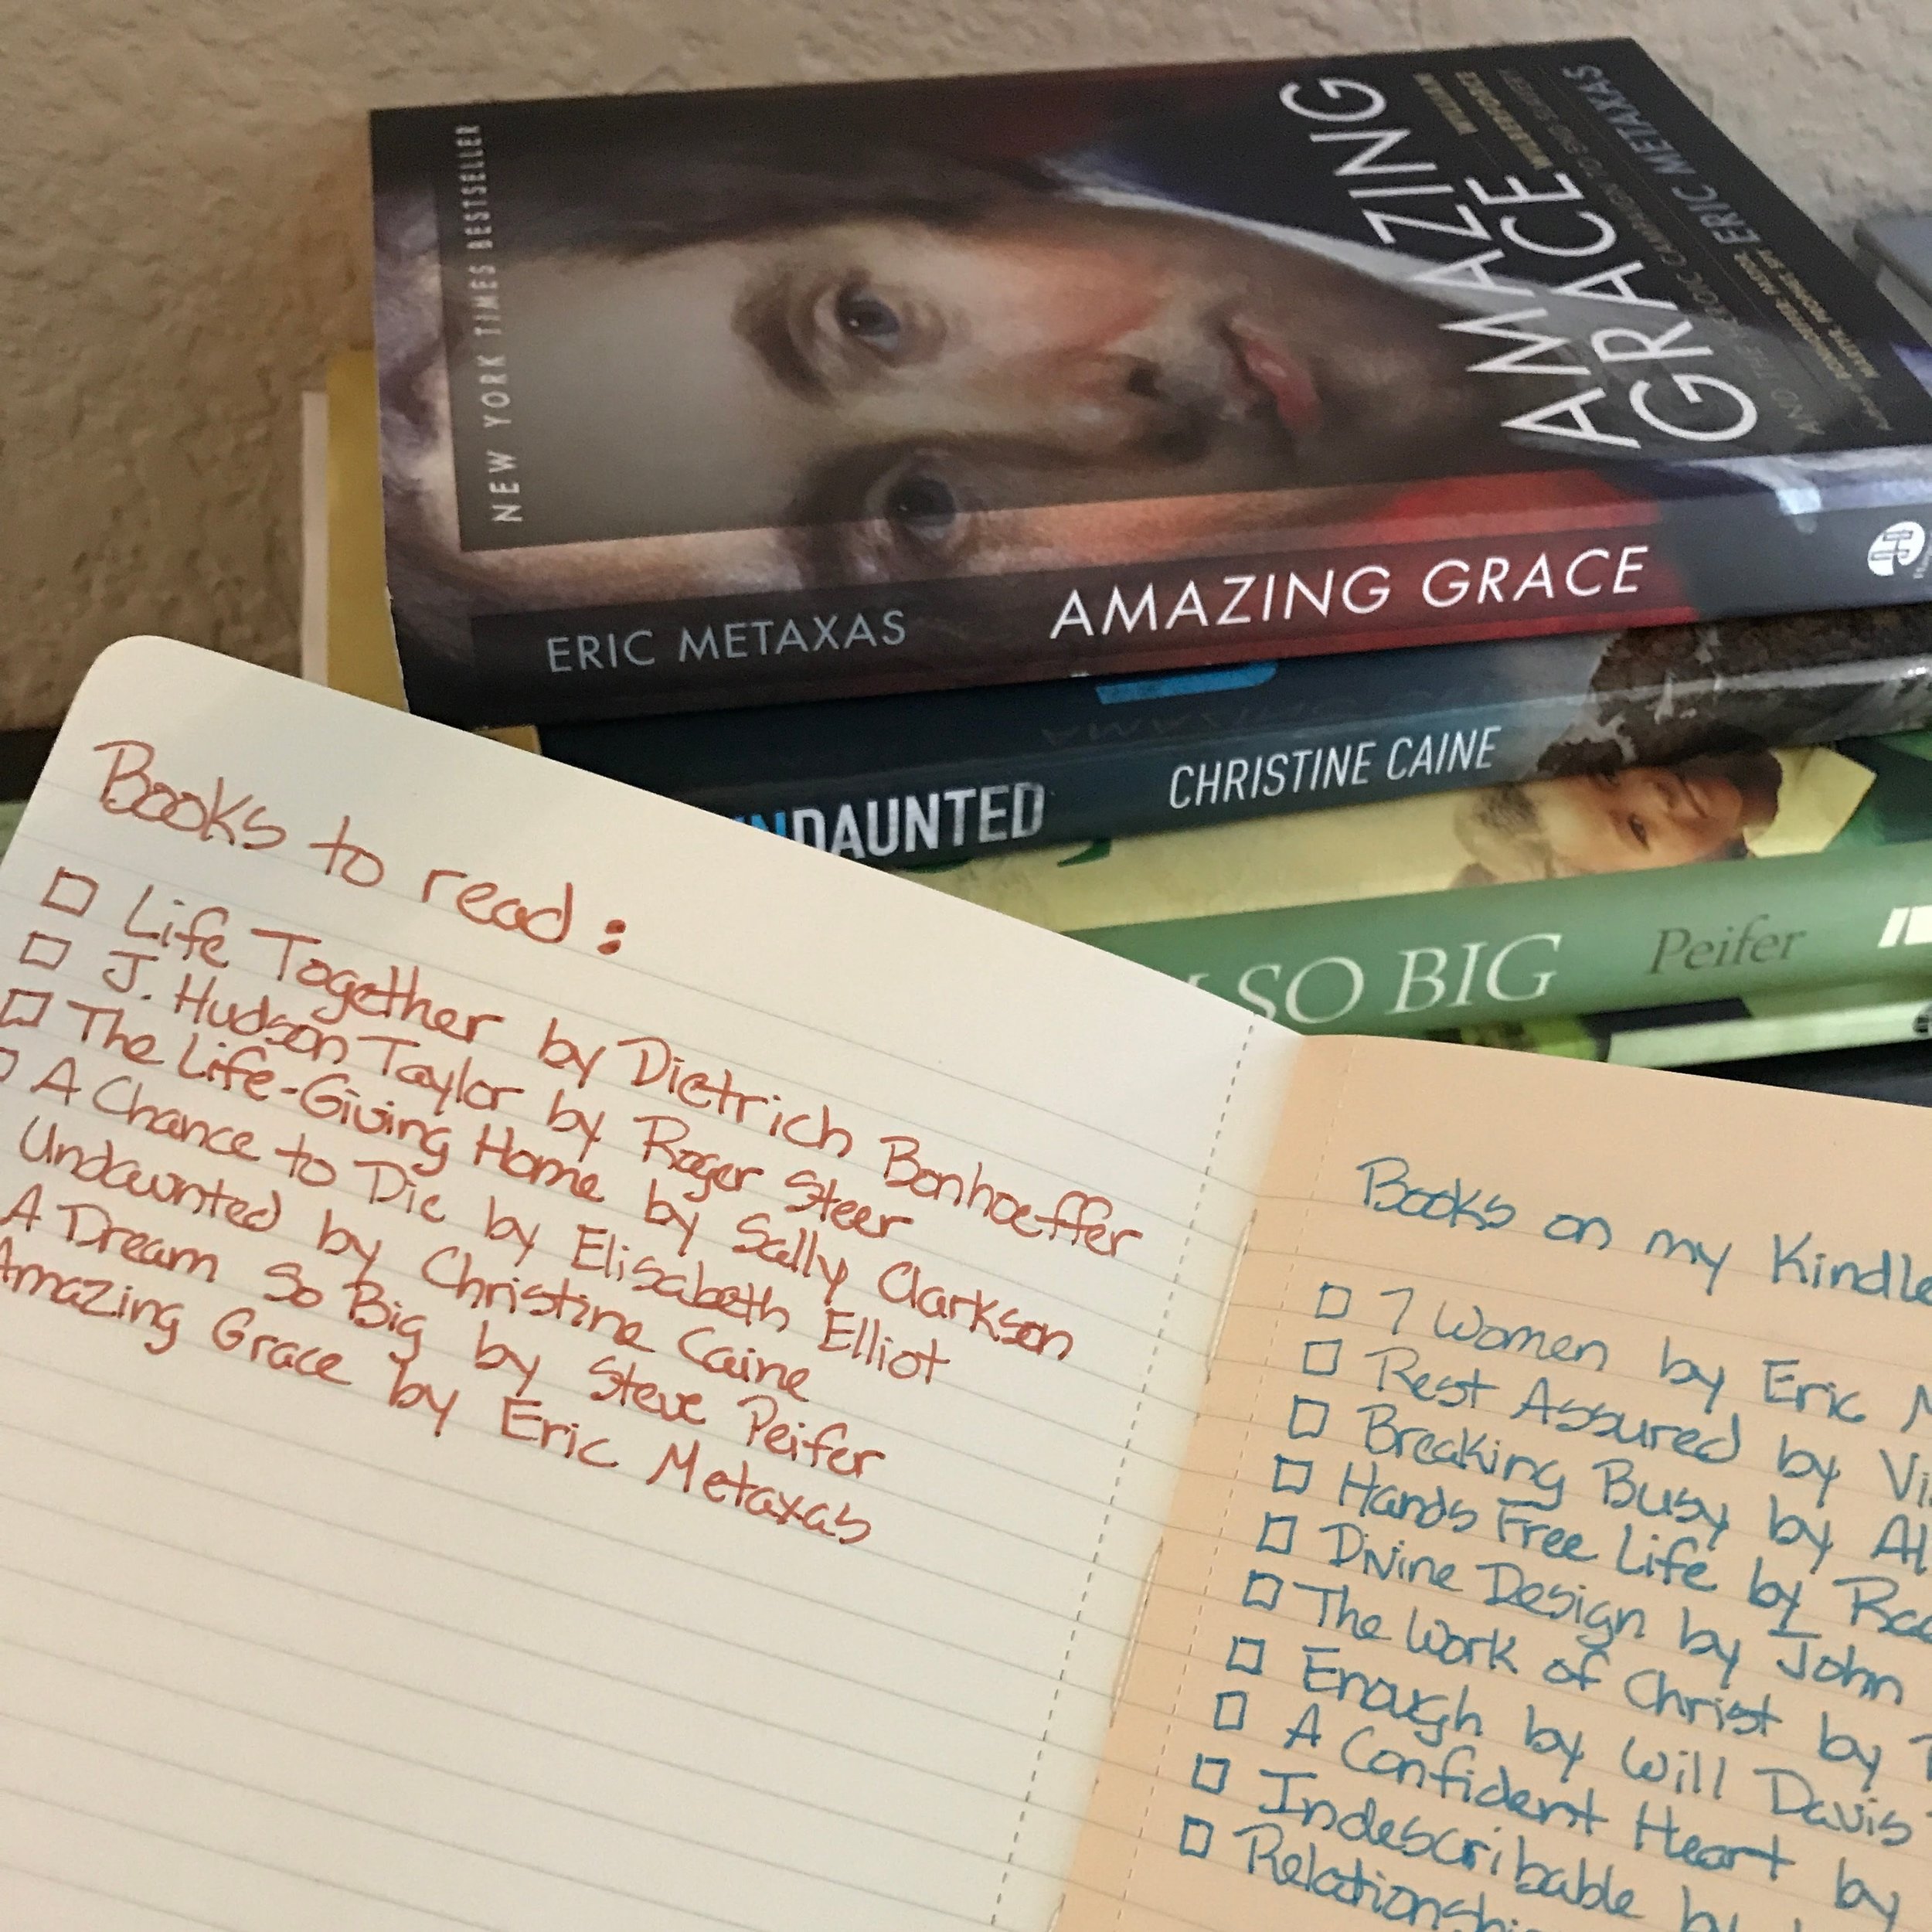 NEW YORK TIMES BESTSELLER
AMAZING
GRACE
WILLIAM
WILBERFORCE
AND THE HEROIC CAMPAIGN TO END SLAVERY
ERIC METAXAS
ERIC METAXAS AMAZING GRACE
UNDAUNTED CHRISTINE CAINE
SO BIG Peifer
Books to read:
Life Together by Dietrich Bonhoeffer
J. Hudson Taylor by Roger Steer
The Life-Giving Home by Sally Clarkson
A Chance to Die by Elisabeth Elliot
Undaunted by Christine Caine
A Dream So Big by Steve Peifer
Amazing Grace by Eric Metaxas
Books on my Kindle
7 Women by Eric
Rest Assured by
Breaking Busy by
Hands Free Life by
Divine Design by John
The Work of Christ by
Enough by Will Davis
A Confident Heart by
Indescribable by